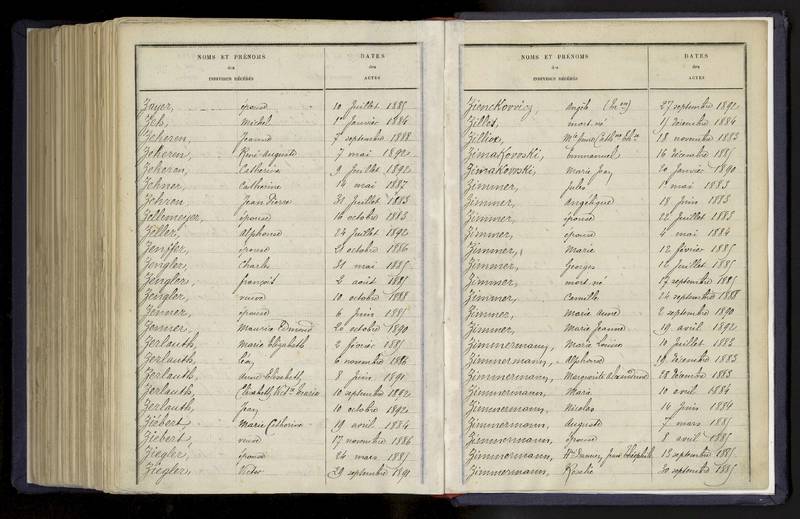 NOMS ET PRÉNOMS
des
INDIVIDUS DÉCÉDÉS
DATES
des
ACTES
Zayer, épouse 10 Juillet 1885
Zeb, Michel 1er Janvier 1884
Zeheren, Jeanne 7 septembre 1888
Zeheren, René Auguste 7 mai 1892
Zeheren, Catherine 9 Juillet 1892
Zehner, Catherine 14 mai 1887
Zehren, Jean Pierre 31 Juillet 1883
Zellemeyer, épouse 16 octobre 1883
Zeller, Alphonse 24 Juillet 1892
Zenffer, épouse 21 octobre 1886
Zengler, Charles 31 mai 1885
Zengler, françois 2 août 1885
Zengler, veuve 10 octobre 1888
Zenner, épouse 6 Juin 1885
Zenner, Maurice Edmond 20 octobre 1890
Zerlauth, Marie Elizabeth 2 février 1885
Zerlauth, Léa, 6 novembre 1886
Zerlauth, Anne Elisabeth, 8 Juin 1891
Zerlauth, Elisabeth 10 septembre 1892
Zerlauth, Jean 10 octobre 1892
Ziébert, Marie Catherine 19 avril 1884
Ziebert, veuve 17 novembre 1886
Ziegler, épouse 24 mars 1885
Ziegler, Victor 29 septembre 1891
NOMS ET PRÉNOMS
des
INDIVIDUS DÉCÉDÉS
DATES
des
ACTES
Zienckovvicz, Angèle 27 septembre 1892
Zilles, mort-né 11 décembre 1884
Zilliox, 18 novembre 1883
Zimakovvski, Emmanuel 16 décembre 1885
Zimakovvski, Marie 20 Janvier 1890
Zimmer, Jules 1er mai 1883
Zimmer, Angélique 18 Juin 1883
Zimmer, épouse 22 Juillet 1883
Zimmer, épouse 4 mai 1884
Zimmer, Marie 12 février 1885
Zimmer, Georges 12 Juillet 1885
Zimmer, mort-né 17 septembre 1885
Zimmer, Camille 24 septembre 1888
Zimmer, Marie Anne 2 septembre 1890
Zimmer, Marie Jeanne 19 avril 1892
Zimmermann, Marie Louise 10 Juillet 1883
Zimmermann, Alphonse 19 décembre 1883
Zimmermann, Marguerite Alexandrine 28 décembre 1883
Zimmermann, Marie 10 avril 1884
Zimmermann, Nicolas 14 Juin 1884
Zimmermann, Auguste 7 mars 1885
Zimmermann, épouse 8 avril 1885
Zimmermann, 13 septembre 1885
Zimmermann, Rosalie 30 septembre 1885